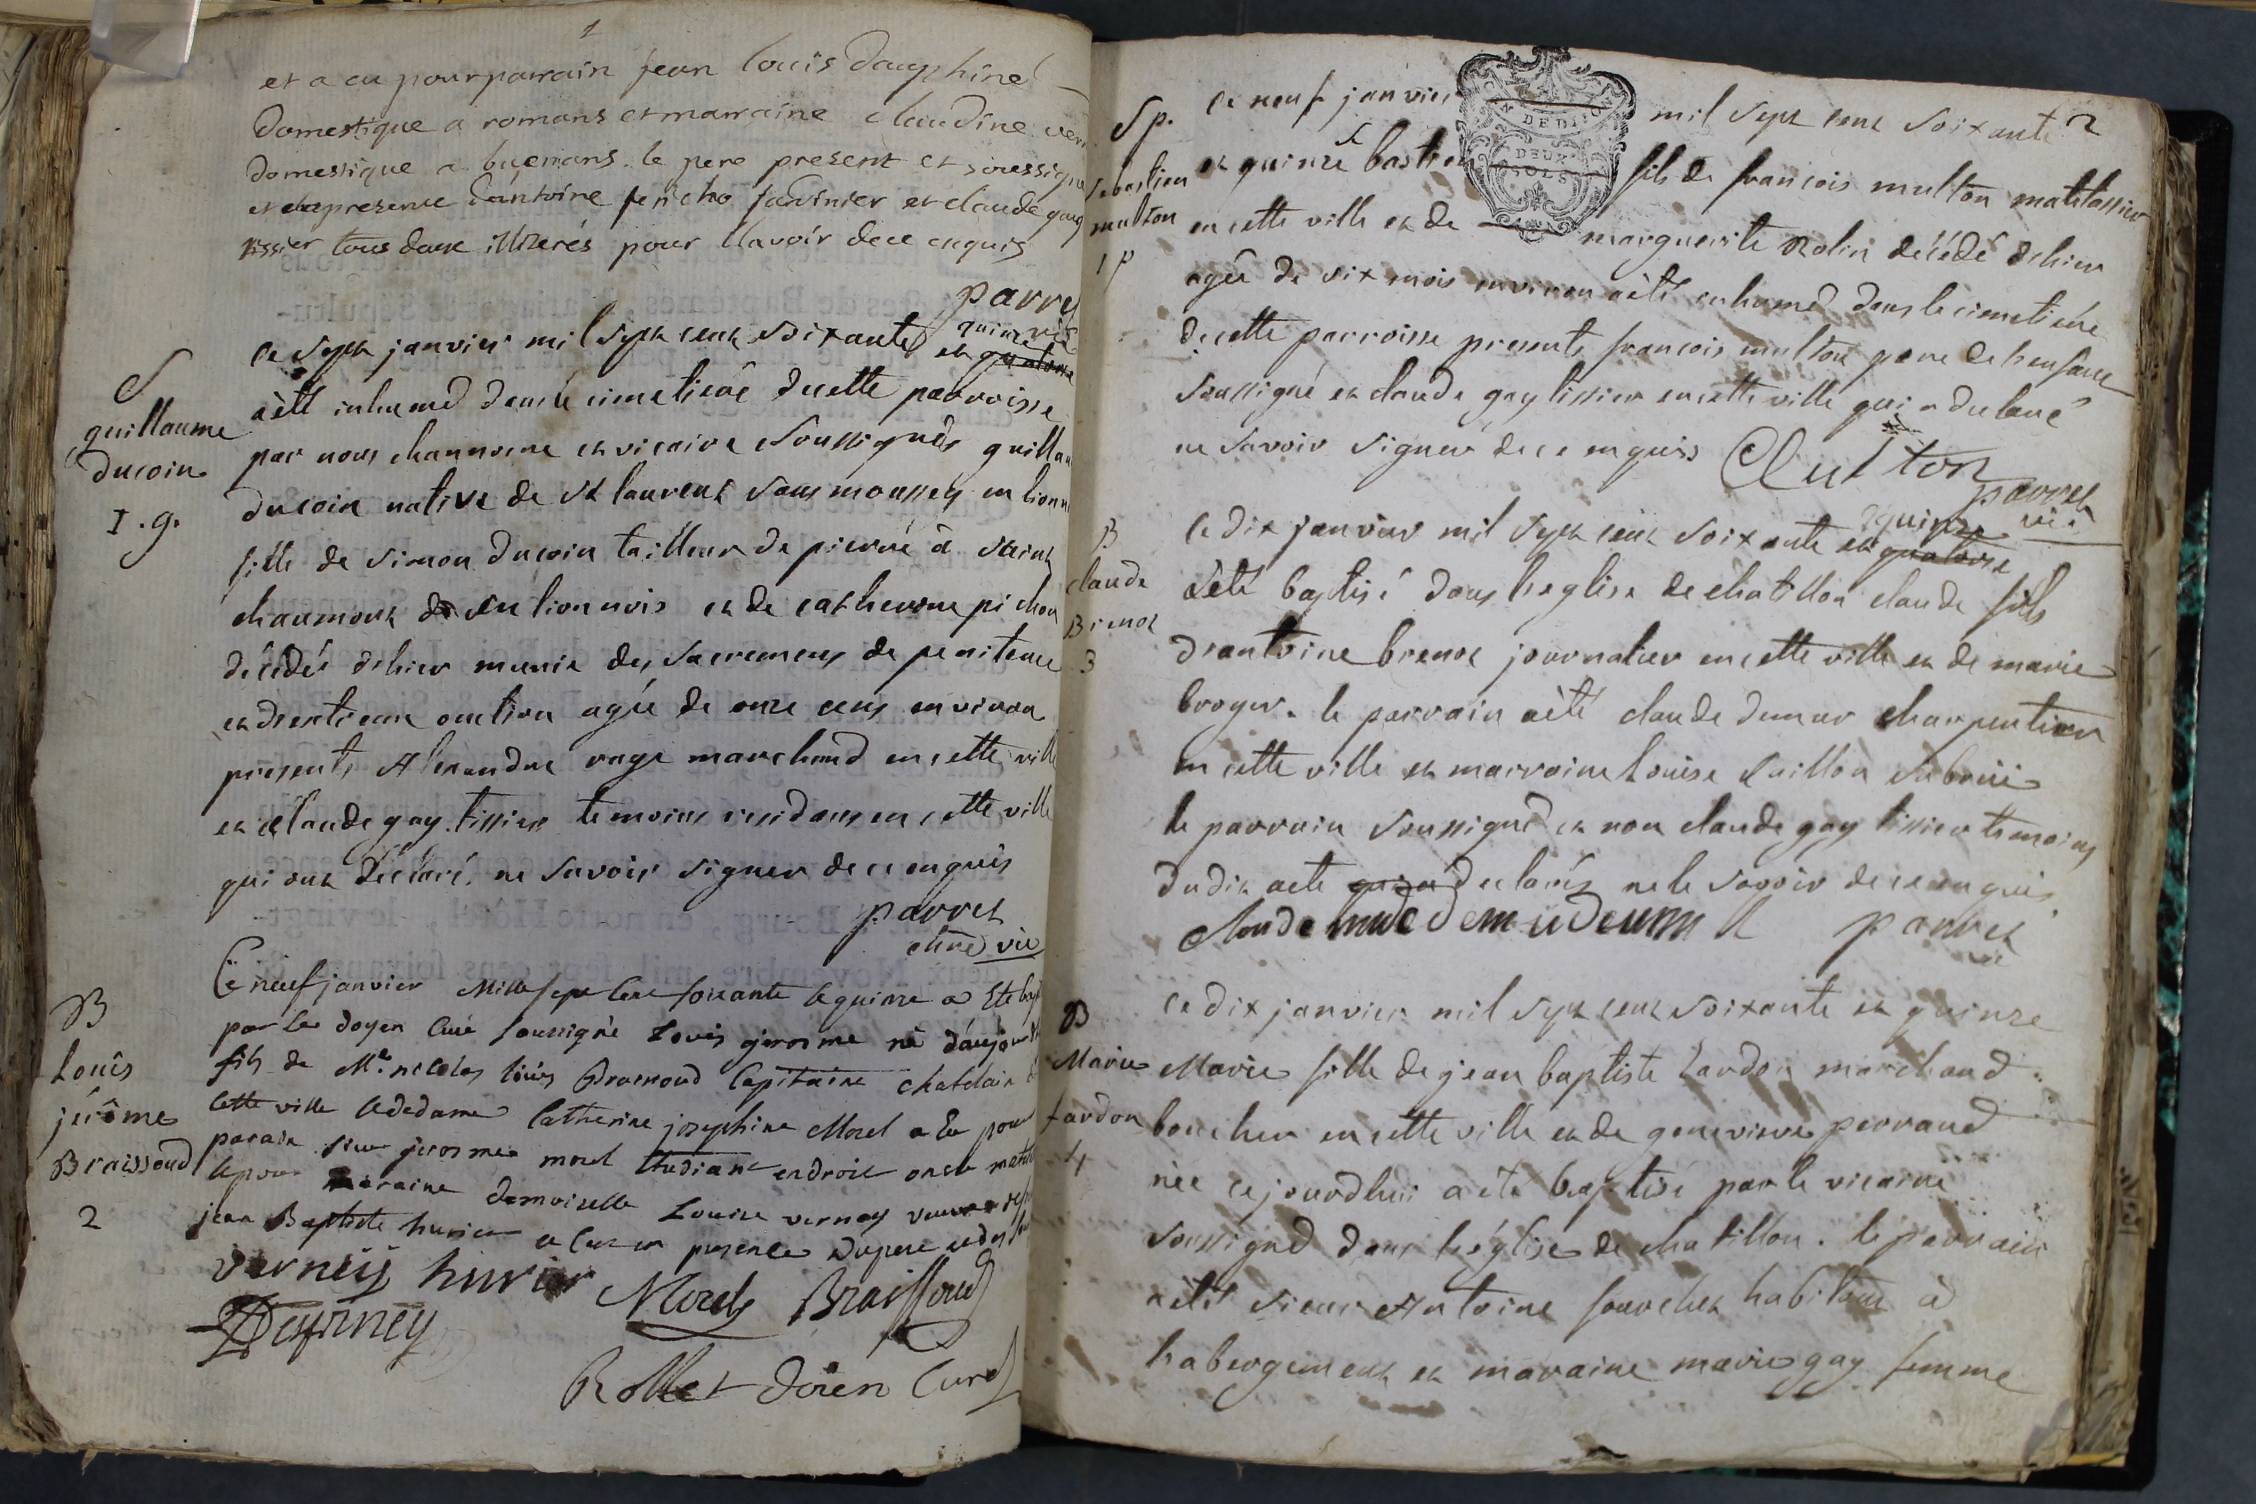 1
et a eu pour parrain jean louis dauphiné
domestique a romans et marraine claudine
domestique a buenans. le pere present et soussigné
et en presence d'antoine jardinier et claude gay
tissier tous deux illiterés pour l'avoir de ce enquis
parret
vic
S
guillaume
ducoin
1. g.
ce sept janvier mil sept cent soixante et quatorze quinze
a été inhumé dans le cimetière de cette parroisse
par nous channoine et vicaire soussignés
ducoin native de st laurent sous moussey en
fille de simon ducoin tailleur de pierre à saint
chaumont en lionnois et de catherine pichon
décédée d'hier munie des sacremens de penitence
et d'extreme onction agée de onze ans environ
presents Alexandre vage marchand en cette ville
et claude gay tissier temoins residans en cette ville
qui ont déclaré ne savoir signer de ce enquis
parret
chne vic
B
Louis
jérôme
Braissoud
2
Ce neuf janvier Mille sept cent soixante et quinze a Eté
par le doyen curé soussigné Louis jerosme né d'aujourd
fils de Me. nicolas louis Braissoud Capitaine chatelain
cette ville et de dame Catherine josephine Morel a Eu pour
parain sieur jerosme morel Etudiant en droit
et pour maraine demoiselle Louise vernay veuve
jean Baptiste hurier et ce en presence du pere
verney hurier
Morel Braissoud
Rollet doien Curé
2
Sp.
sebastien
multon
1 p
DEUX SOLS
ce neuf janvier mil sept cent soixante
et quinze bastien fils de francois multon matelassier
en cette ville et de marguerite Rolin décédé d'hier
agée de six mois environ a été inhumé dans le cimetière
de cette parroisse presents francois multon pere de l'enfant
soussigné et claude gay tissier en cette ville qui a declaré
ne savoir signer de ce enquis
Multon
parret
vic
B
claude
Brenot
3
ce dix janvier mil sept cent soixante et quatorze quinze
a été baptisé dans l'eglise de chatillon claude fils
d'antoine brenot journalier en cette ville et de marie
broyer. le parrain a été claude demur charpentier
en cette ville et marraine Louise
le parrain soussigné et non claude gay tissier temoins
dudit acte qui a declarés ne le savoir de ce enquis
claude parret
vic
B
Marie
Lardon
4
ce dix janvier mil sept cent soixante et quinze
Marie fille de jean baptiste Lardon marchand
boucher en cette ville et de genevieve perraud
née cejourdhui a été baptisé par le vicaire
soussigné dans l'église de chatillon. le parrain
a été sieur Antoine fourchet habitant à
l'abergement et maraine marie gay femme